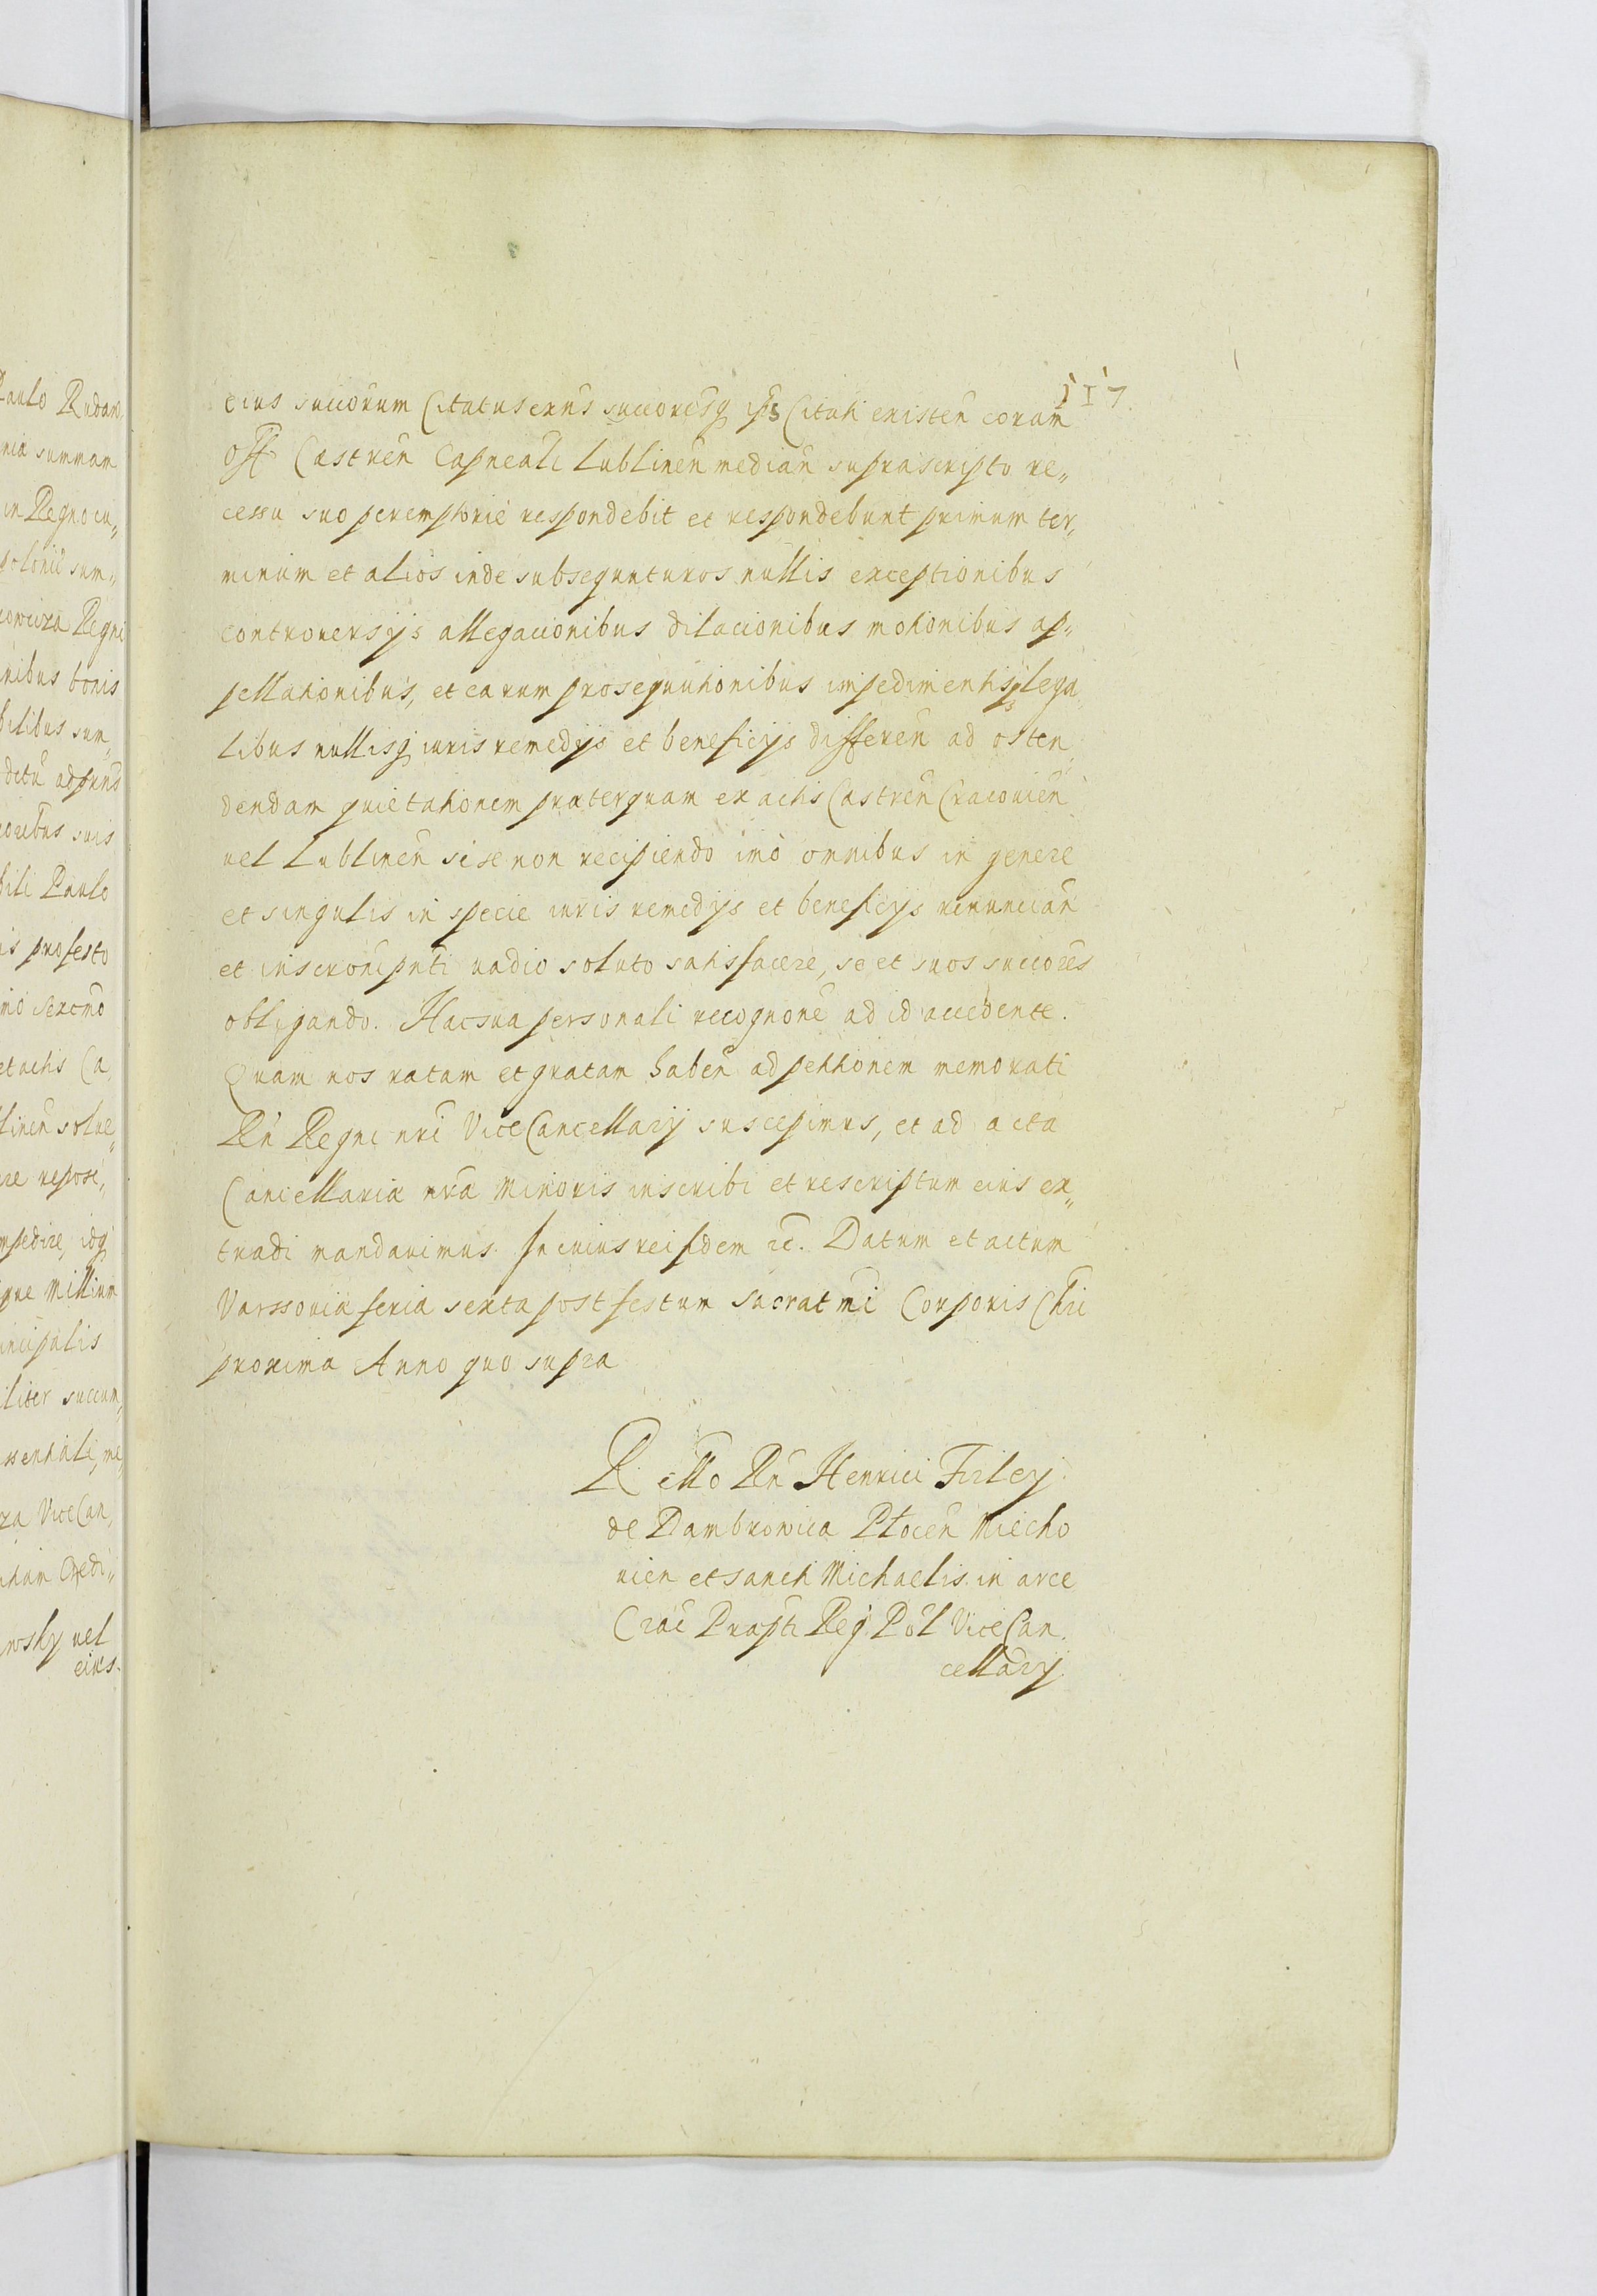 117.
eius succorum Citatus erit succoresq ipis Citati existen coram
Off Castren Capneali Lublinen median suprascripto re„
cessu suo peremptorie respondebit et respondebunt primum ter„
minum et alios inde subsequuturos nullis exceptionibus
controuersijs allegacionibus dilacionibus motionibus ap„
pellationibus, et earum prosequutionibus impedimentisq lega„
libus nullisq iuris remedijs et beneficijs differen ad osten„
dendam quietationem praeterquam ex actis Castren Cracouien
uel Lublinen sese non recipiendo imo omnibus in genere
et singulis in specie iuris remedijs et beneficijs renuncian
et inscronipnti uadio soluto satisfacere, se et suos succores
obligando. Hac sua personali recognone ad id accedente.
Quam nos ratam et gratam haben ad petitionem memorati
Rn Regni nri ViceCancellarij suscepimus, et ad acta
Cancellariæ nræ Minoris inscribi et rescriptum eius ex„
tradi mandauimus. In cuius rei fidem etc. Datum et actum
Varssouiæ feria sexta post festum sacratmi Corporis Chri
proxima Anno quo supra
R ello Rn Henrici Firley
de Dambrowica Plocen Miecho
uien et sancti Michaelis in arce
Crac Præpti Reg Pol ViceCan„
cellarij
Paulo Rudaw
summam
in Regno cu„
sum„
Regni
nibus bonis
bilibus sum„
suis
Paulo
is profesto
et actis Ca„
linen solue„
re repose„
mpedire, idq
que Millium
ncipalis
liter succum„
ssentiali, me„
ra ViceCan„
wsky uel
eius.